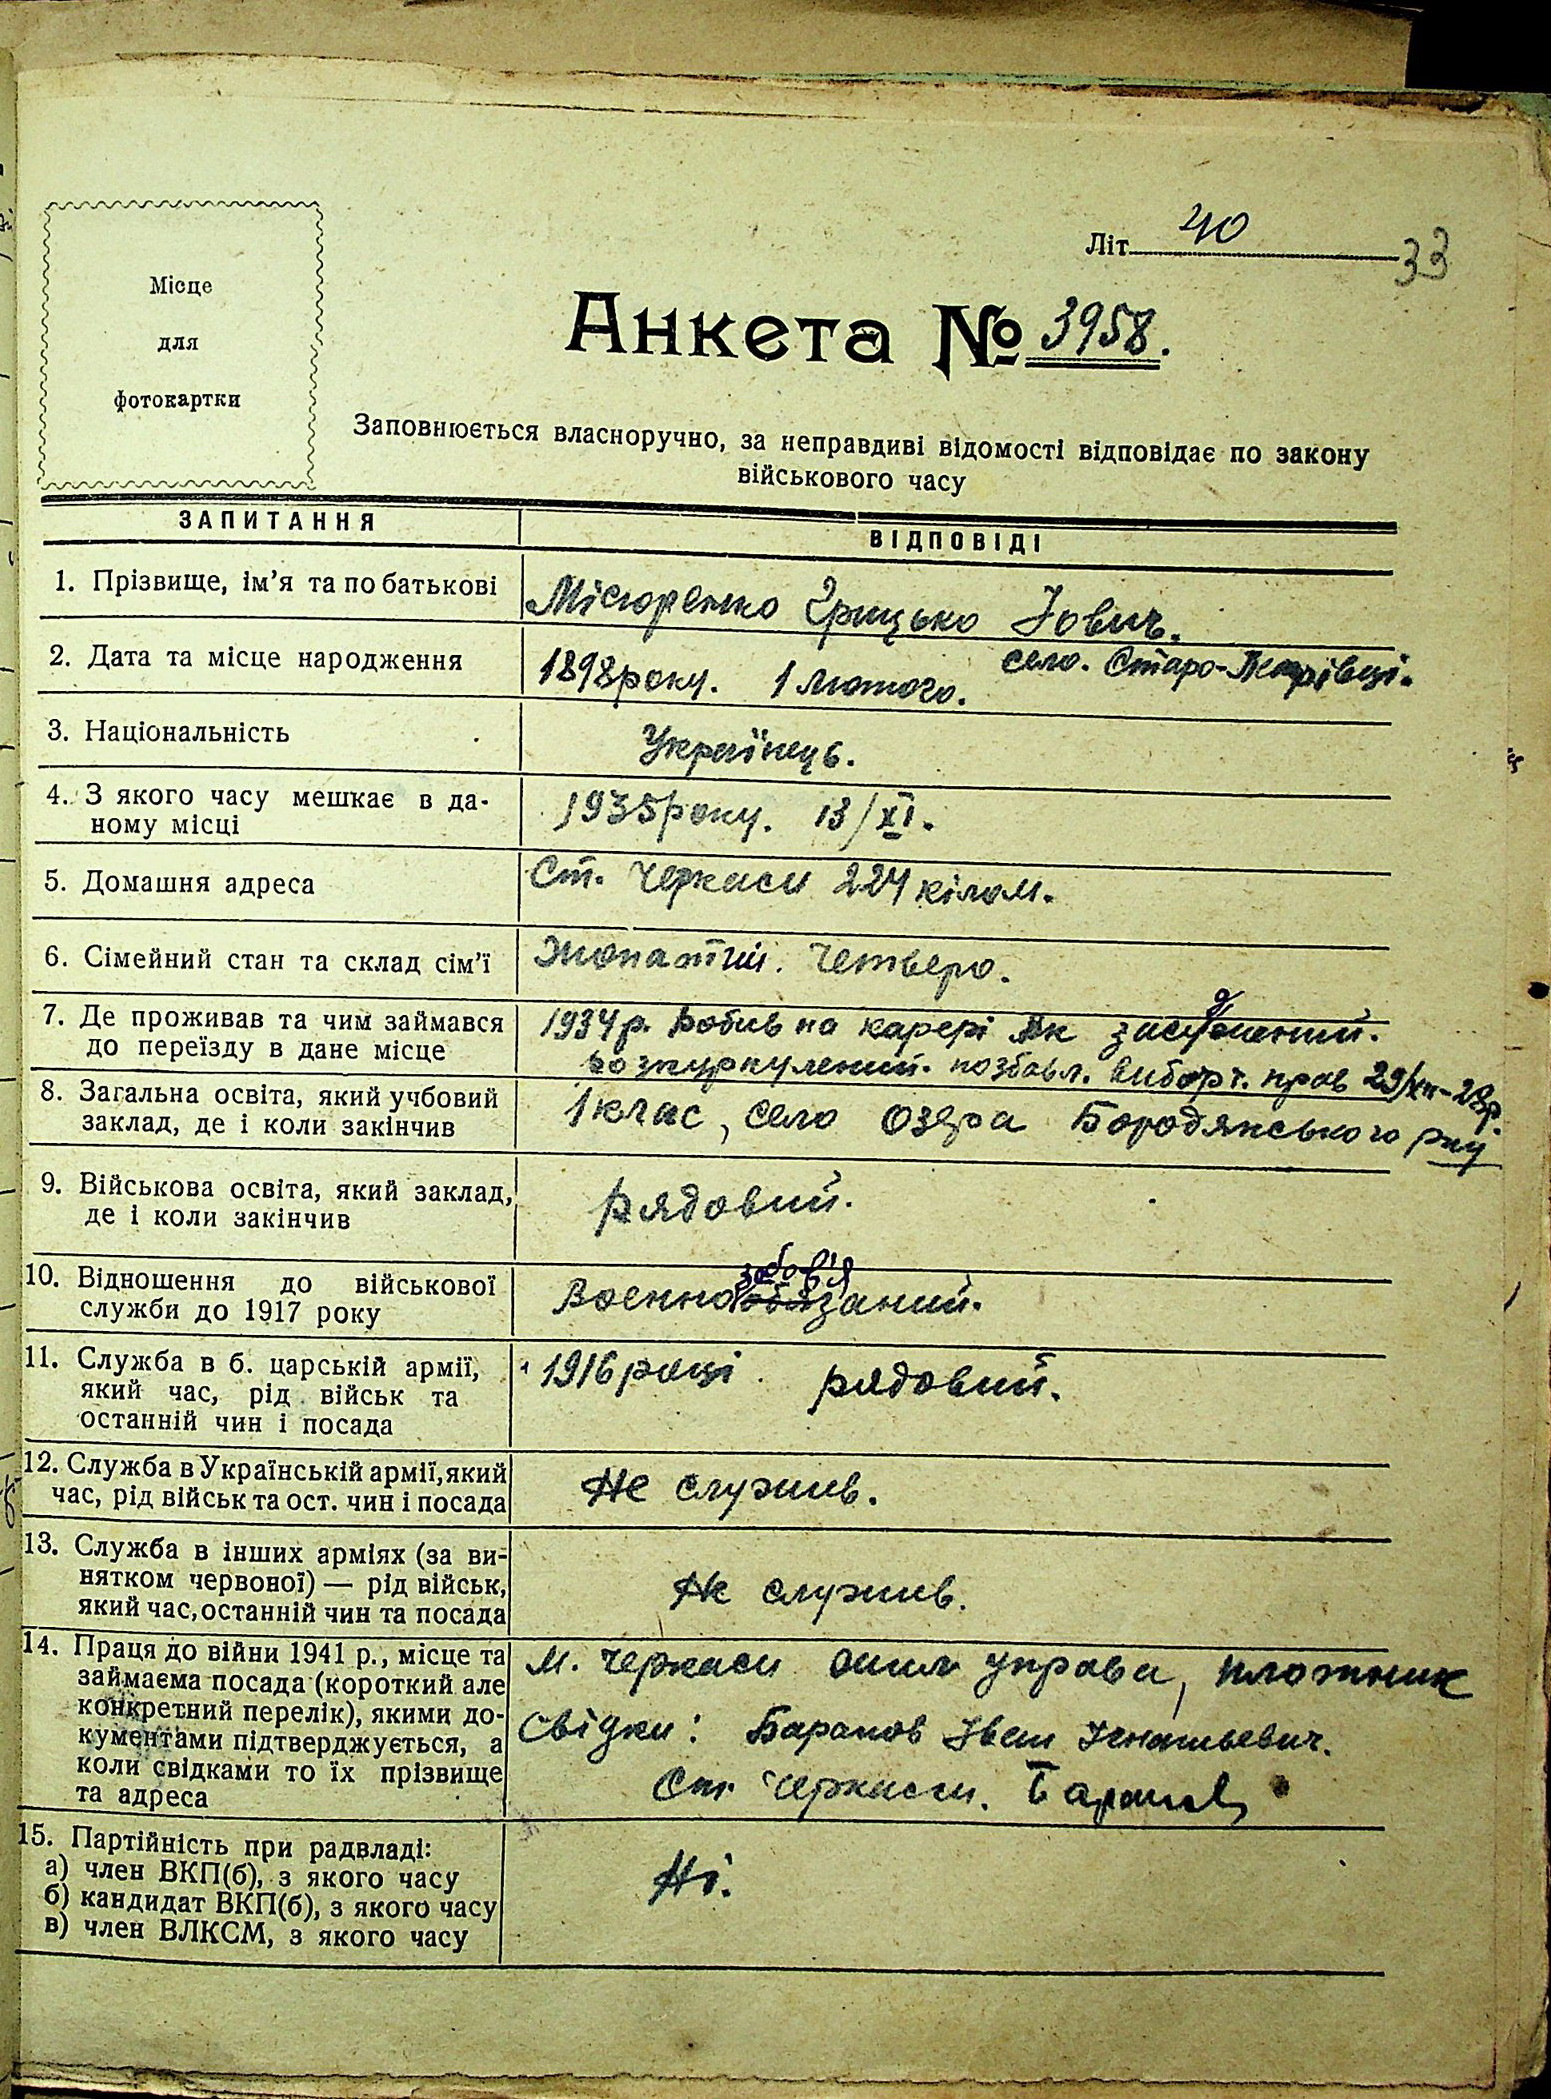 Літ 40 33
Місце
для
фотокартки
Анкета № 3958.
Заповнюється власноручно, за неправдиві відомості відповідає по закону
військового часу
ЗАПИТАННЯ
ВІДПОВІДІ
1. Прізвище, ім'я та по батькові
Місюренко Грицько Йович.
2. Дата та місце народження
1898 року. 1 Лютого. село. Старо-Петрівці.
3. Національність
Українець.
4. З якого часу мешкає в да-
ному місці
1935 року. 13/XI.
5. Домашня адреса
Ст. Черкаси 224 кілом.
6. Сімейний стан та склад сім'ї
Жонатий. Четверо.
7. Де проживав та чим займався
до переїзду в дане місце
1934 р. Робив на карері Як засуджений.
розкуркулений. позбавл. виборч. прав 29/XII-29р.
8. Загальна освіта, який учбовий
заклад, де і коли закінчив
1 клас, село Озера Бородянського р-ну
9. Військова освіта, який заклад,
де і коли закінчив
Рядовий.
10. Відношення до військової
служби до 1917 року
зобов'я
Воєннообязаний.
11. Служба в б. царській армії,
який час, рід військ та
останній чин і посада
1916 році рядовий.
12. Служба в Українській армії, який
час, рід військ та ост. чин і посада
Не служив.
13. Служба в інших арміях (за ви-
нятком червоної) — рід військ,
який час, останній чин та посада
Не служив.
14. Праця до війни 1941 р., місце та
займаєма посада (короткий але
конкретний перелік), якими до-
кументами підтверджується, а
коли свідками то їх прізвище
та адреса
м. Черкаси управа, плотник
свідки: Баранов Іван Ігнатьевич.
Ст. Черкасси. Баранов
15. Партійність при радвладі:
а) член ВКП(б), з якого часу
б) кандидат ВКП(б), з якого часу
в) член ВЛКСМ, з якого часу
Ні.